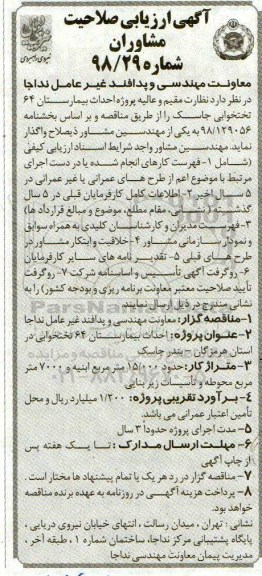 آگهی ارزیابی صلاحیت
مشاوران
شماره ۹۸/۲۹
معاونت مهندسی و پدافند غیر عامل نداجا
در نظر دارد نظارت مقیم و عالیه پروژه احداث بیمارستان ۶۴
تختخوابی جاسک را از طریق مناقصه و بر اساس بخشنامه
۹۸/۱۲۹۰۵۶ به یکی از مهندسین مشاور ذیصلاح واگذار
نماید. مهندسین مشاور واجد شرایط اسناد ارزیابی کیفی
(شامل ۱-فهرست کارهای انجام شده یا در دست اجرای
مرتبط با موضوع اعم از طرح های عمرانی یا غیر عمرانی در
۵ سال اخیر ۲-اطلاعات کامل کارفرمایان قبلی در ۵ سال
گذشته (نشانی، مقام مطلع، موضوع و مبالغ قرارداد ها)
۳-فهرست مدیران و کارشناسان کلیدی به همراه سوابق
و نمودار سازمانی مشاور ۴-خلاقیت و ابتکار مشاور در
طرح های قبلی ۵-تقدیر نامه های سایر کارفرمایان
۶-روگرفت آگهی تأسیس و اساسنامه شرکت ۷-روگرفت
تأیید صلاحیت معتبر معاونت برنامه ریزی و بودجه کشور) را به
نشانی مندرج در ذیل ارسال نمایند.
۱-مناقصه گزار: معاونت مهندسی و پدافند غیر عامل نداجا
۲-عنوان پروژه: احداث بیمارستان ۶۴ تختخوابی در
استان هرمزگان - بندر جاسک
۳-متراژ کار: حدود ۱۵۰۰۰ متر مربع ابنیه و ۷۰۰۰ متر
مربع محوطه و تأسیسات زیر بنایی
۴-برآورد تقریبی پروژه: ۱/۲۰۰ میلیارد ریال و محل
تأمین اعتبار عمرانی می باشد.
۵-مدت اجرای پروژه حدوداً ۳ سال
۶-مهلت ارسال مدارک: تا یک هفته پس
از چاپ آگهی
۷-مناقصه گزار در رد هر یک یا تمام پیشنهاد ها مختار است.
۸-پرداخت هزینه آگهی در روزنامه به عهده برنده مناقصه
خواهد بود.
نشانی: تهران، میدان رسالت، انتهای خیابان نیروی دریایی،
پایگاه پشتیبانی مرکز نداجا، ساختمان شماره ۱، طبقه آخر،
مدیریت پیمان معاونت مهندسی نداجا